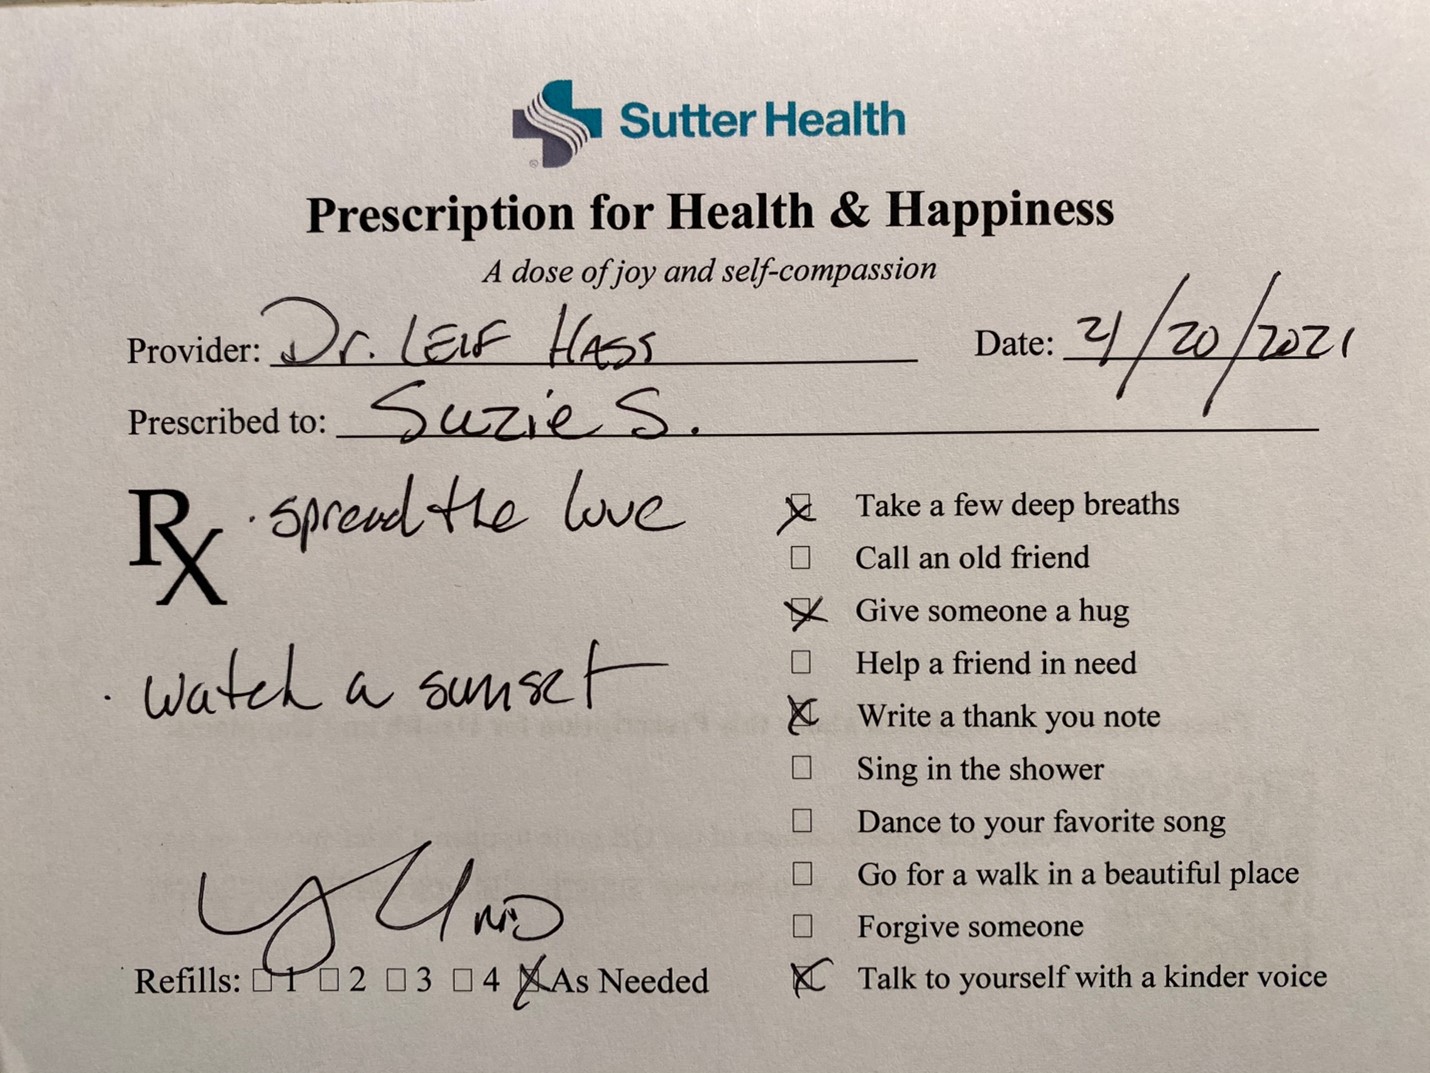 Sutter Health
®
Prescription for Health & Happiness
A dose of joy and self-compassion
Provider: Dr. LEIF HASS Date: 2/20/2021
Prescribed to: Suzie S.
Rx · spread the love
· watch a sunset
☒ Take a few deep breaths
☐ Call an old friend
☒ Give someone a hug
☐ Help a friend in need
☒ Write a thank you note
☐ Sing in the shower
☐ Dance to your favorite song
☐ Go for a walk in a beautiful place
☐ Forgive someone
☒ Talk to yourself with a kinder voice
MD
Refills: ☐ 1 ☐ 2 ☐ 3 ☐ 4 ☒ As Needed